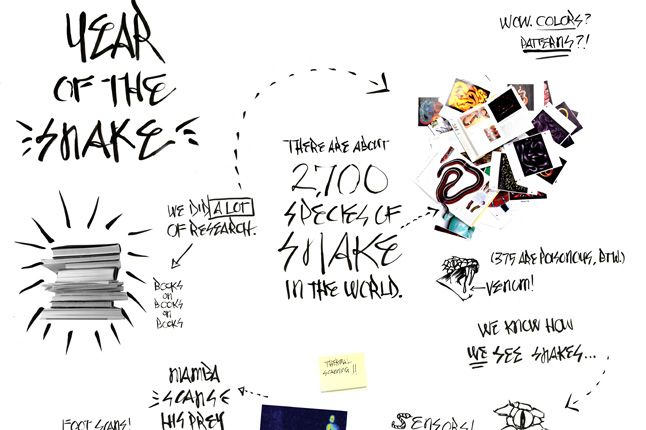 YEAR
OF THE
SNAKE
WOW. COLORS?
PATTERNS?!
THERE ARE ABOUT
2,700
SPECIES OF
SNAKE
IN THE WORLD.
WE DID A LOT
OF RESEARCH.
BOOKS
ON
BOOKS
ON
BOOKS
(375 ARE POISONOUS, BTW.)
VENOM!
WE KNOW HOW
WE SEE SNAKES...
THERMAL
SCANNING!!
MAMBA
SCANS
HIS PREY
FOOT SCANS!
SENSORS!